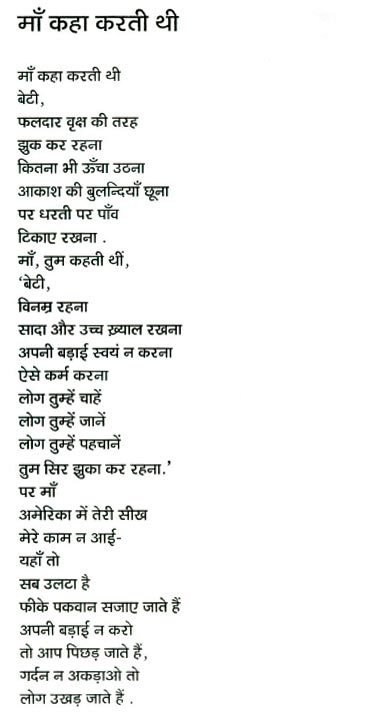 माँ कहा करती थी
माँ कहा करती थी
बेटी,
फलदार वृक्ष की तरह
झुक कर रहना
कितना भी ऊँचा उठना
आकाश की बुलन्दियाँ छूना
पर धरती पर पाँव
टिकाए रखना .
माँ, तुम कहती थीं,
‘बेटी,
विनम्र रहना
सादा और उच्च ख़्याल रखना
अपनी बड़ाई स्वयं न करना
ऐसे कर्म करना
लोग तुम्हें चाहें
लोग तुम्हें जानें
लोग तुम्हें पहचानें
तुम सिर झुका कर रहना.’
पर माँ
अमेरिका में तेरी सीख
मेरे काम न आई-
यहाँ तो
सब उलटा है
फीके पकवान सजाए जाते हैं
अपनी बड़ाई न करो
तो आप पिछड़ जाते हैं,
गर्दन न अकड़ाओ तो
लोग उखड़ जाते हैं .